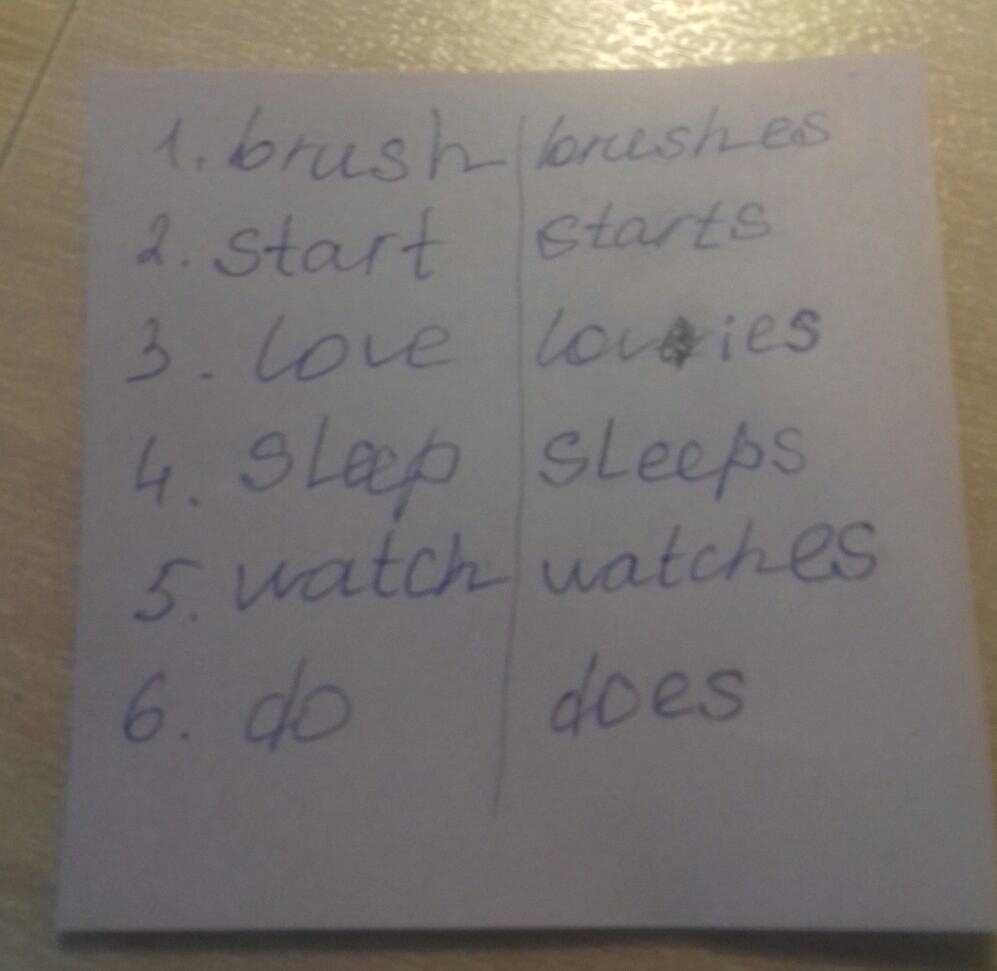 1. brush | brushes
2. start | starts
3. love | lovies
4. sleep | sleeps
5. watch | watches
6. do | does